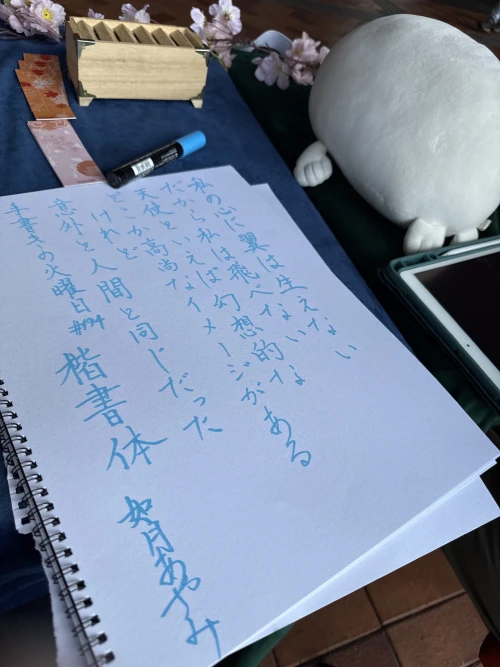 私の心に翼は生えない
だから私は飛べない
天使といえば幻想的な
どこか高尚なイメージがある
けれど
意外と人間と同じだった
手書きの火曜日#194
楷書体
如月あやみ